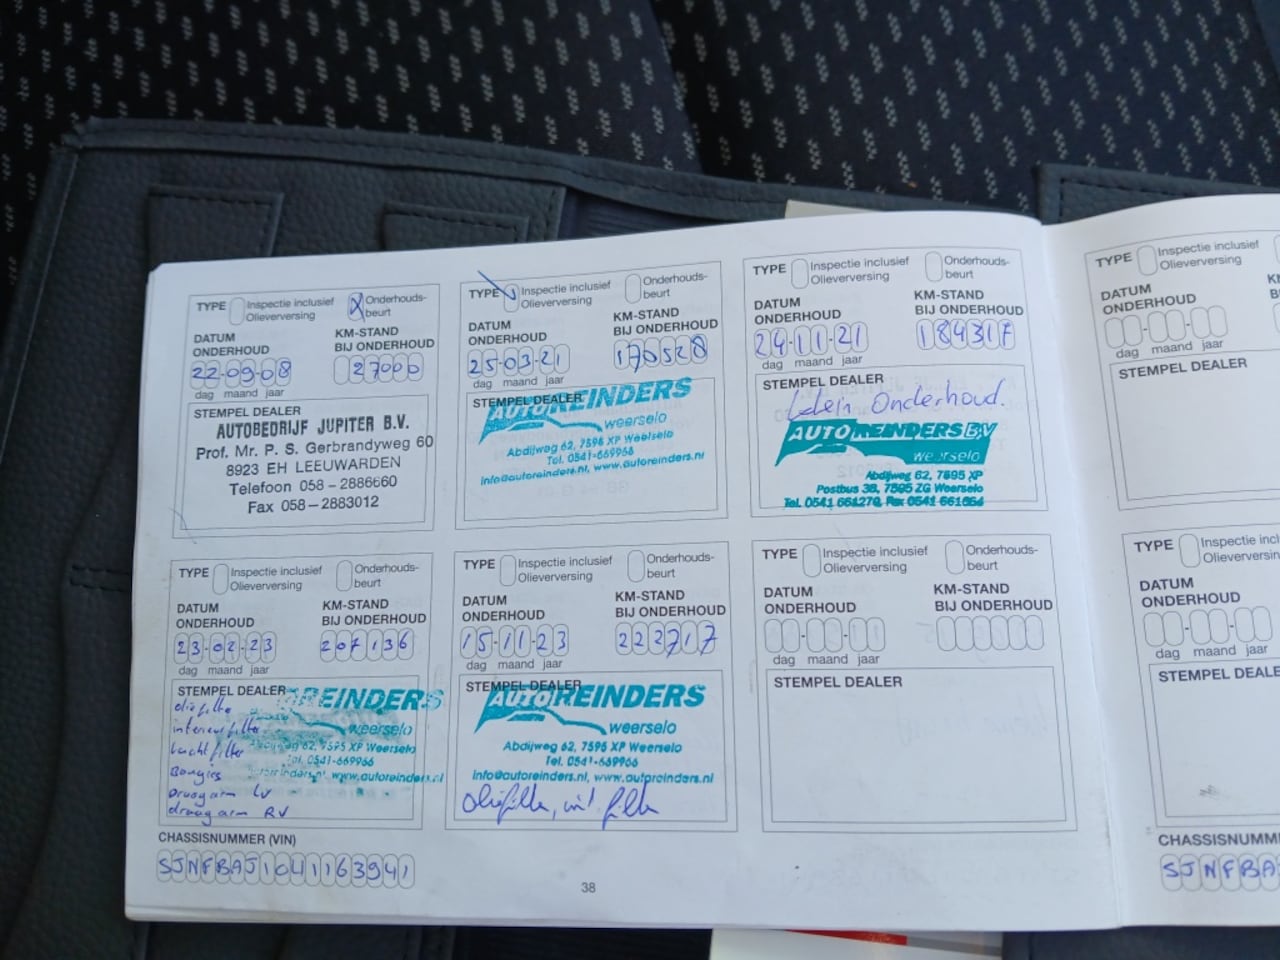 TYPE Inspectie inclusief Olieverversing X Onderhouds-beurt
DATUM ONDERHOUD KM-STAND BIJ ONDERHOUD
22-09-08 27000
dag maand jaar
STEMPEL DEALER
AUTOBEDRIJF JUPITER B.V.
Prof. Mr. P. S. Gerbrandyweg 60
8923 EH LEEUWARDEN
Telefoon 058 - 2886660
Fax 058 - 2883012
TYPE Inspectie inclusief Olieverversing Onderhouds-beurt
DATUM ONDERHOUD KM-STAND BIJ ONDERHOUD
25-03-21 170528
dag maand jaar
STEMPEL DEALER
AUTO REINDERS
weerselo
Abdijweg 62, 7595 XP Weerselo
Tel. 0541-669966
info@autoreinders.nl, www.autoreinders.nl
TYPE Inspectie inclusief Olieverversing Onderhouds-beurt
DATUM ONDERHOUD KM-STAND BIJ ONDERHOUD
24-11-21 184317
dag maand jaar
STEMPEL DEALER
klein Onderhoud.
AUTO REINDERS B.V
weerselo
Abdijweg 62, 7595 XP
Postbus 38, 7595 ZG Weerselo
Tel. 0541 661270 Fax 0541 661664
TYPE Inspectie inclusief Olieverversing Onderhouds-beurt
DATUM ONDERHOUD KM-STAND BIJ ONDERHOUD
23-02-23 207136
dag maand jaar
STEMPEL DEALER
REINDERS
oliefilter
interieurfilter
weerselo
luchtfilter
62, 7595 XP Weerselo
Tel. 0541-669966
Bougies
www.autoreinders.nl
Draagarm LV
draagarm RV
TYPE Inspectie inclusief Olieverversing Onderhouds-beurt
DATUM ONDERHOUD KM-STAND BIJ ONDERHOUD
15-11-23 223717
dag maand jaar
STEMPEL DEALER
AUTO REINDERS
weerselo
Abdijweg 62, 7595 XP Weerselo
Tel. 0541-669966
info@autoreinders.nl, www.autoreinders.nl
Oliefilter, int filter
TYPE Inspectie inclusief Olieverversing Onderhouds-beurt
DATUM ONDERHOUD KM-STAND BIJ ONDERHOUD
dag maand jaar
STEMPEL DEALER
CHASSISNUMMER (VIN)
SJNFBAJ10U1163941
38
TYPE Inspectie inclusief Olieverversing
DATUM ONDERHOUD
dag maand jaar
STEMPEL DEALER
TYPE Inspectie Olieverversing
DATUM ONDERHOUD
dag maand jaar
STEMPEL
CHASSISNUMM
SJNFBA